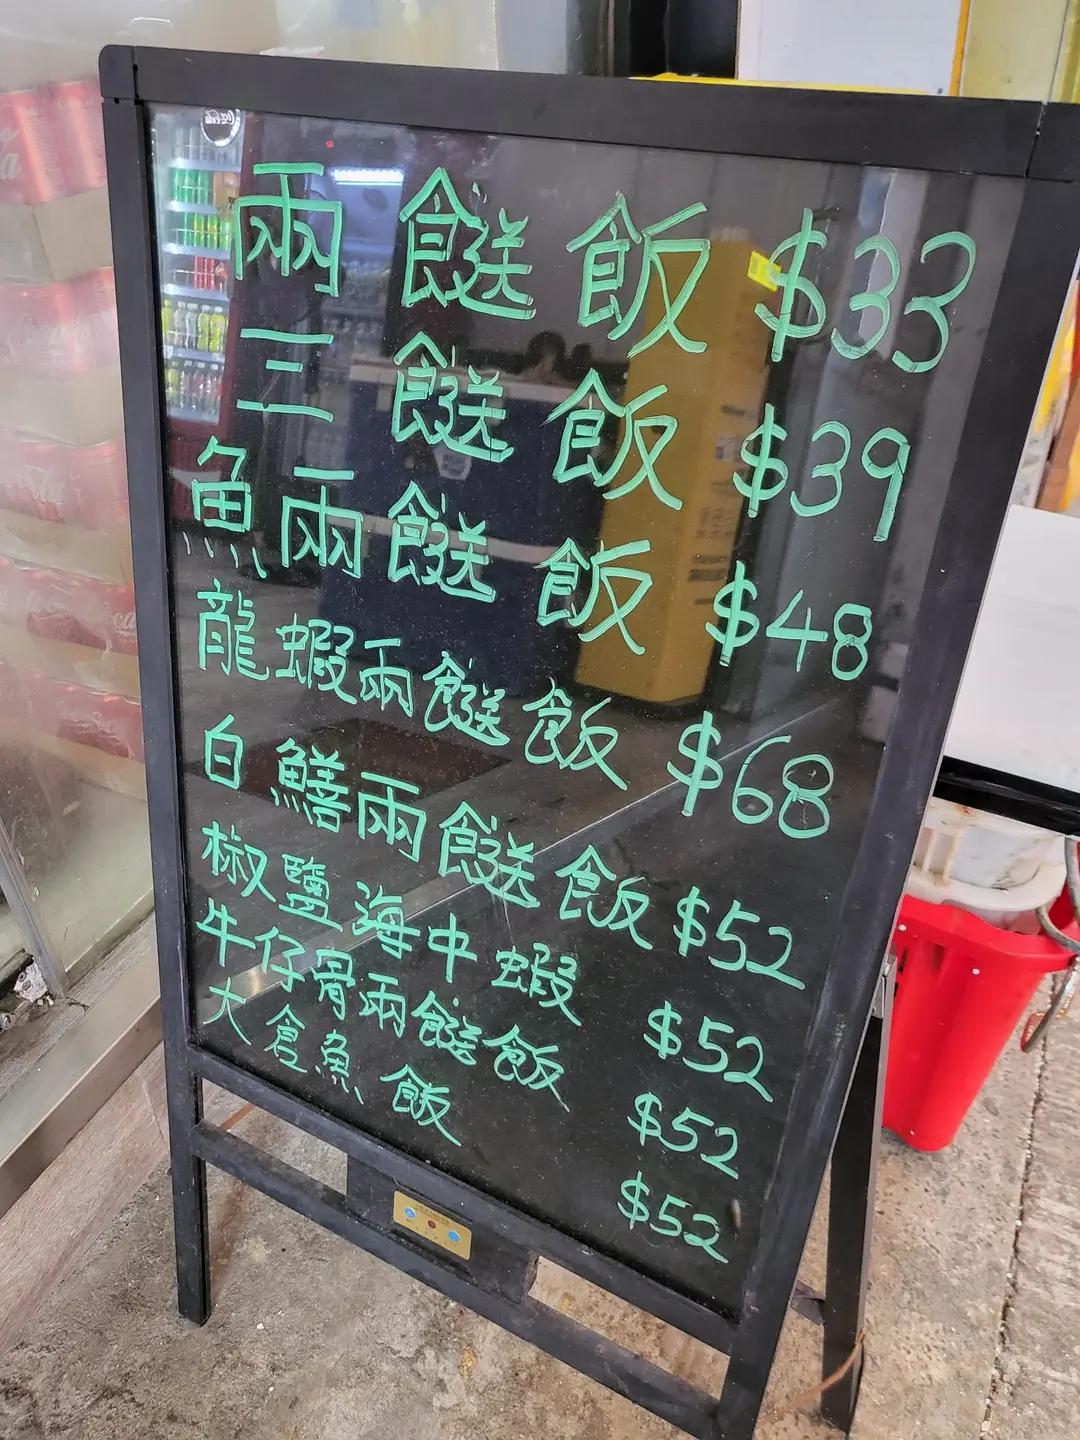 Coca-Cola
兩餸飯 $33
三餸飯 $39
魚兩餸飯 $48
龍蝦兩餸飯 $68
白鱔兩餸飯 $52
椒鹽海中蝦 $52
牛仔骨兩餸飯 $52
大倉魚飯 $52